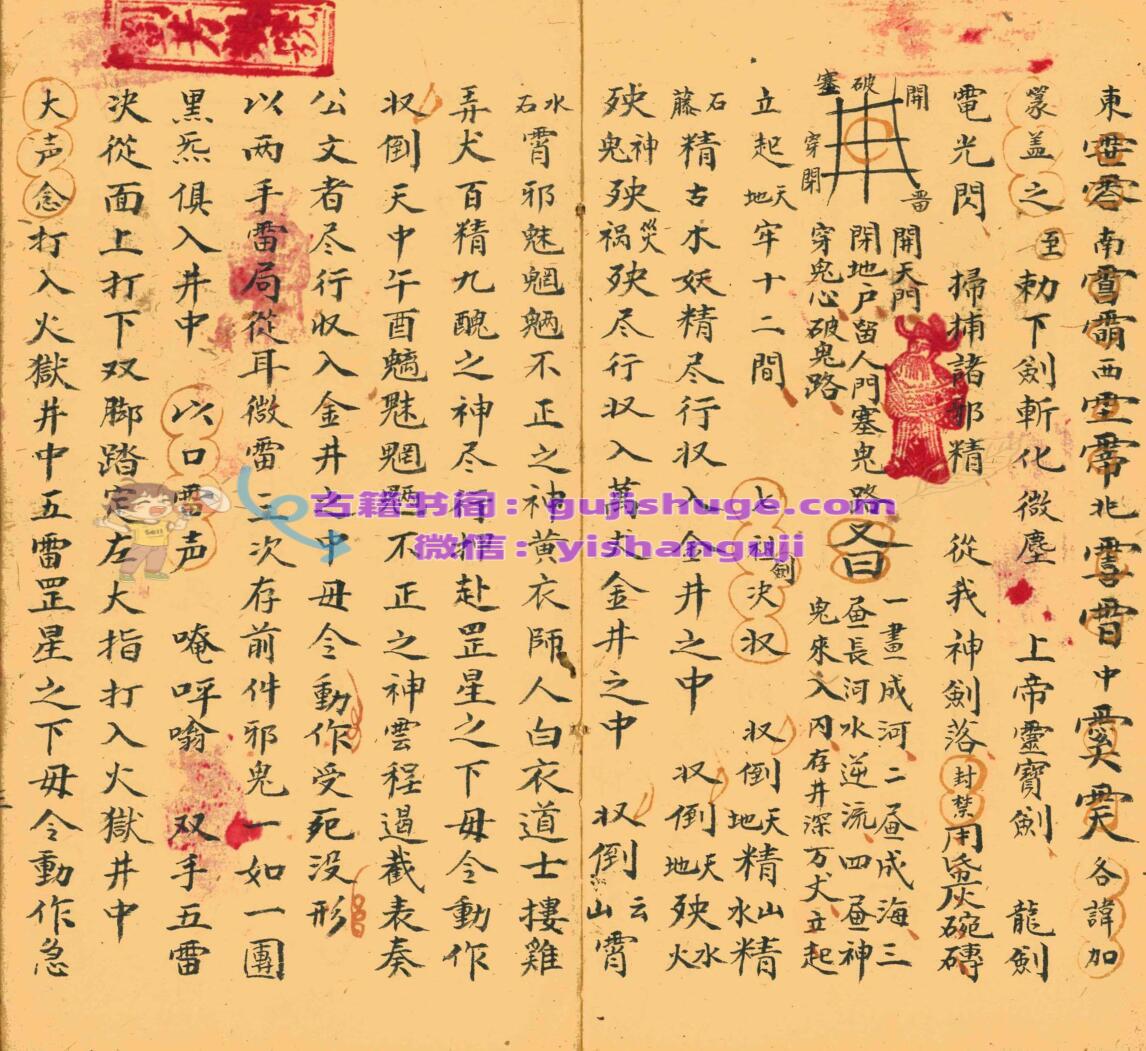 東 南 西 北 中 各諱加
蒙盖之至勅下劍斬化微塵 上帝靈寶劍 龍劍
電光閃 掃捕諸邪精 從我神劍落封禁用 灰碗磚
開
破
塞
穿
閉
畨
開天門
閉地戶留人門塞鬼路
穿鬼心破鬼路
一畫成河二畫成海三
畫長河水逆流四畫神
鬼來入內存井深万丈立起
立起天地牢十二間 七祖劍决収 収倒天地精山水精
石藤精古木妖精尽行収入金井之中 収倒天地殃水火
殃神鬼殃災禍殃尽行収入萬丈金井之中 収倒云山霄
水石霄邪魅魍魎不正之神黃衣師人白衣道士摟雞
弄犬百精九醜之神尽行押赴罡星之下毋令動作
収倒天中午酉 魅魍 不正之神雲程遏截表奏
公文者尽行収入金井之中毋令動作受死没形
以两手雷局從耳微雷三次存前件邪鬼一如一團
黑炁俱入井中 以口雷声 唵呼噏 双手五雷
决從面上打下双脚踏定左大指打入火獄井中
大声念打入火獄井中五雷罡星之下毋令動作急
古籍书阁：gujishuge.com
微信：yishanguji